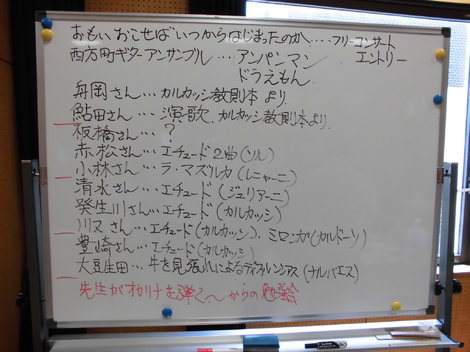 おもいおこせばいつからはじまったのか‥‥フリーコンサート
エントリー
西方町ギターアンサンブル…アンパンマン
ドラえもん.
舟岡さん…カルカッシ教則本より
鮎田さん…演歌.カルカッシ教則本より.
板橋さん…?
赤松さん…エチュード2曲(ソル)
小林さん…ラ・マズルカ(レニャーニ)
清水さん…エチュード(ジュリアーニ)
癸生川さん…エチュード(カルカッシ)
川又さん…エチュード(カルカッシ).ミロンガ(カルドーソ)
豊崎さん…エチュード(カルカッシ)
大豆生田…牛を見張れによるディフェレンシアス(ナルバエス)
先生がオカリナを弾く〜からの勉強会